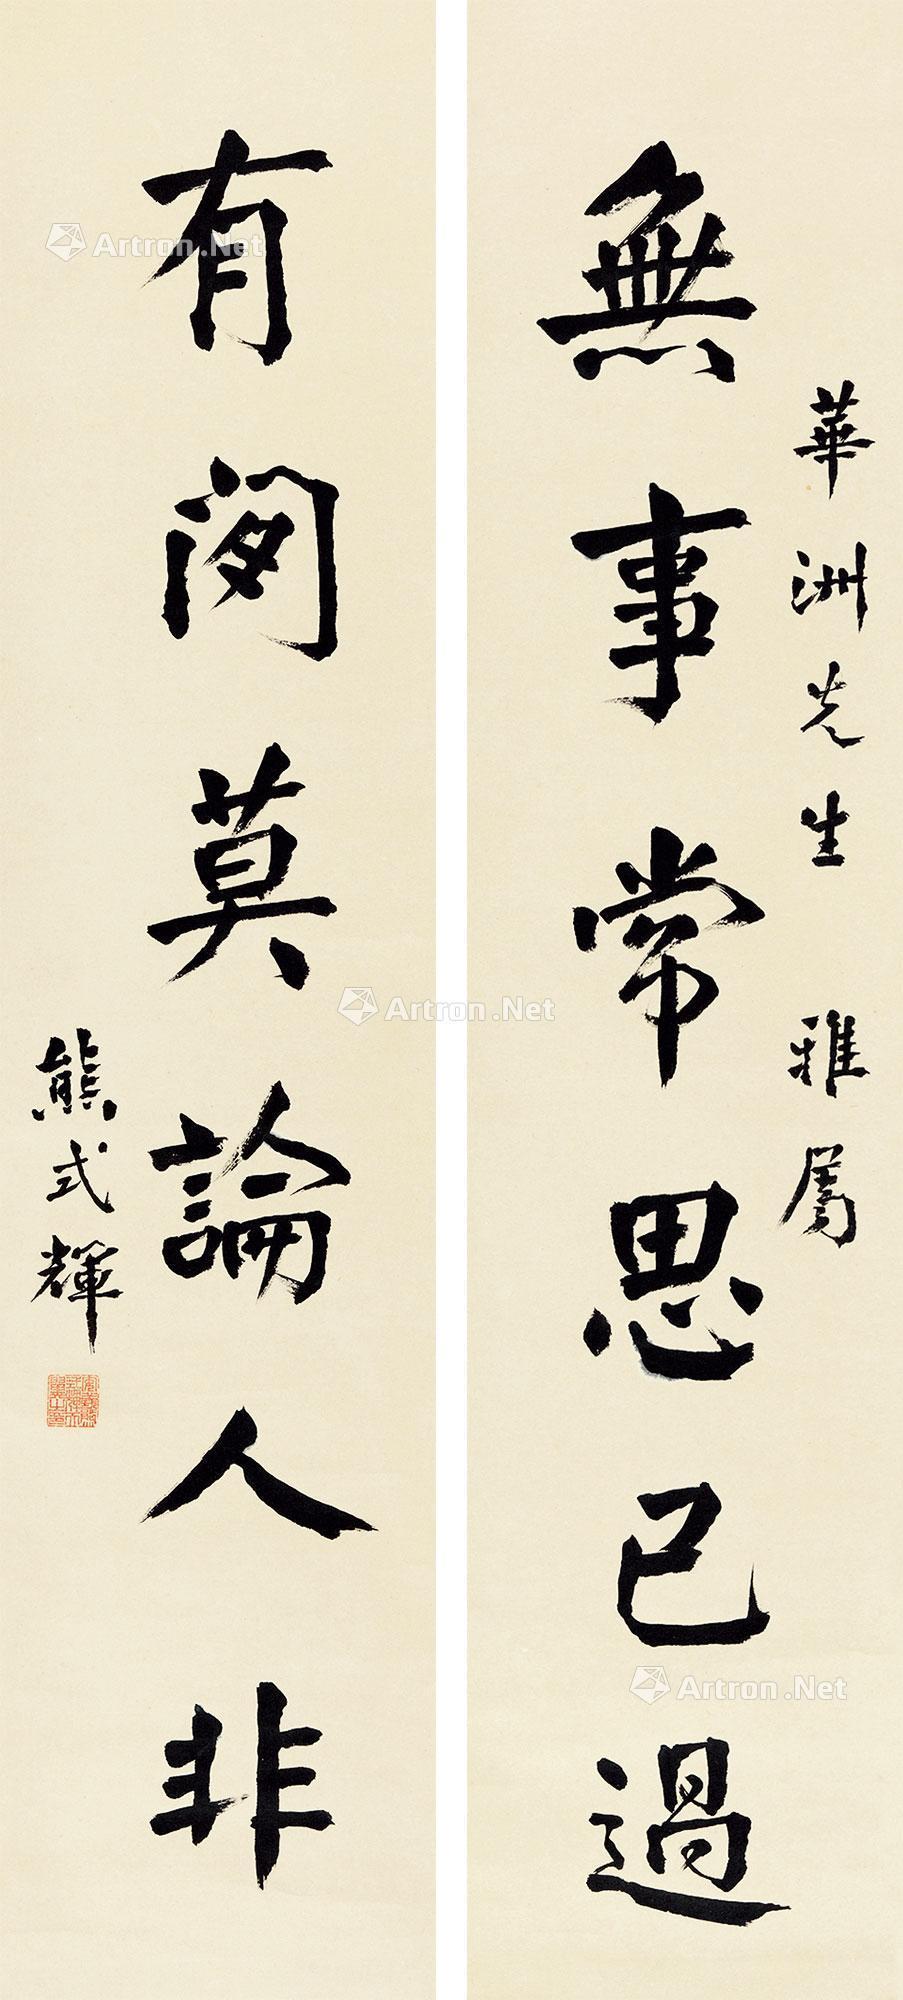 華洲先生 雅屬
無事常思己過
有閒莫論人非
熊式輝
Artron.Net
Artron.Net
Artron.Net